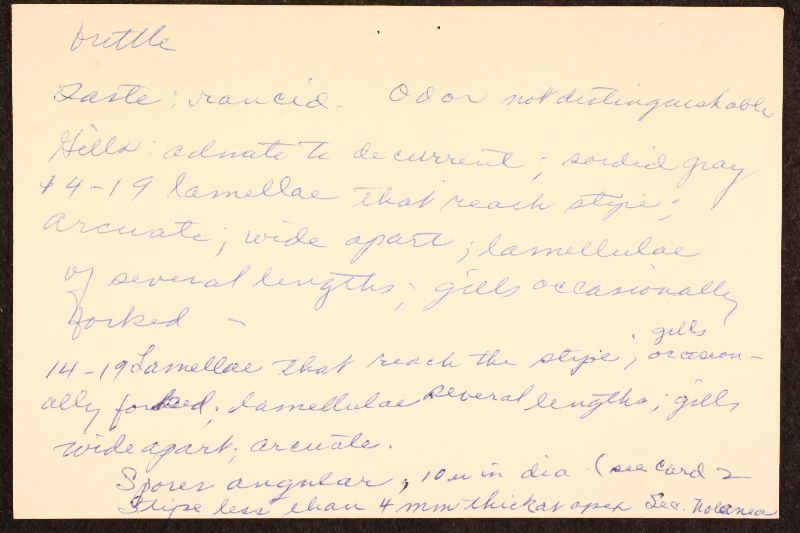 brittle
Taste: rancid. Odor not distinguishable
Gills: adnate to decurrent; sordid gray
14-19 lamellae that reach stipe;
arcuate; wide apart; lamellulae
of several lengths; gills occasionally
forked -
14-19 Lamellae that reach the stipe; gills occasion-
ally forked; lamellulae several lengths; gills
wide apart; arcuate.
Spores angular, 10 u in dia. (see card 2
Stipe less than 4 mm thick at apex Sec. Nolanea